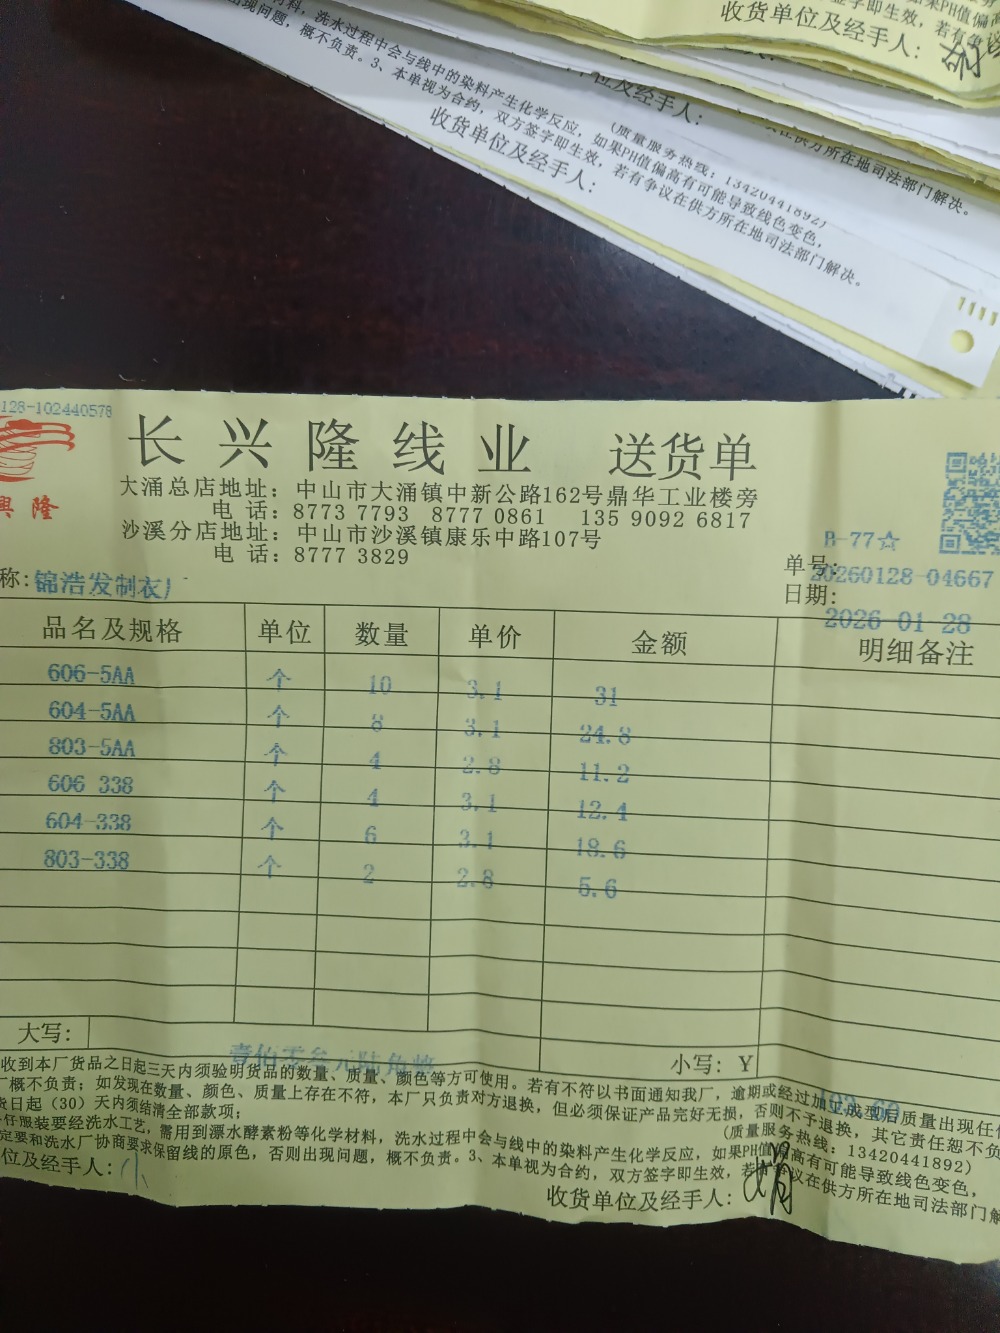 收货单位及经手人:
料，洗水过程中会与线中的染料产生化学反应，如果PH值偏高有可能导致线色变色，
出现问题，概不负责。3、本单视为合约，双方签字即生效，若有争议在供方所在地司法部门解决。
(质量服务热线: 13420441892)
收货单位及经手人:
128-102440578
長興隆
长兴隆线业 送货单
大涌总店地址: 中山市大涌镇中新公路162号鼎华工业楼旁
电 话: 8773 7793 8777 0861 135 9092 6817
沙溪分店地址: 中山市沙溪镇康乐中路107号
电 话: 8777 3829
B-77☆
单号: 20260128-04667
日期: 2026-01-28
称: 锦浩发制衣厂
品名及规格 单位 数量 单价 金额 明细备注
606-5AA 个 10 3.1 31
604-5AA 个 8 3.1 24.8
803-5AA 个 4 2.8 11.2
606-338 个 4 3.1 12.4
604-338 个 6 3.1 18.6
803-338 个 2 2.8 5.6
大写: 壹佰零叁元陆角整 小写: Y 103.60
收到本厂货品之日起三天内须验明货品的数量、质量、颜色等方可使用。若有不符以书面通知我厂，逾期或经过加工成型后质量出现任何
概不负责；如发现在数量、颜色、质量上存在不符，本厂只负责对方退换，但必须保证产品完好无损，否则不予退换，其它责任恕不负
货日起（30）天内须结清全部款项；
仔服装要经洗水工艺，需用到漂水酵素粉等化学材料，洗水过程中会与线中的染料产生化学反应，如果PH值偏高有可能导致线色变色，
定要和洗水厂协商要求保留线的原色，否则出现问题，概不负责。3、本单视为合约，双方签字即生效，若有争议在供方所在地司法部门解
(质量服务热线: 13420441892)
位及经手人: 小
收货单位及经手人: